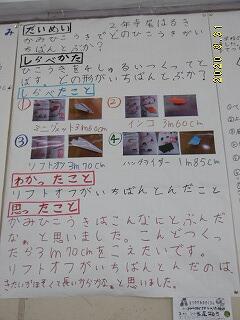 だいめい
２年
かみひこうきでどのひこうきがい
ちばんとぶか？
しらべかた
ひこうきを４しゅるいつくってと
ばす どの形がいちばんとぶか？
しらべたこと
①
②
ミニジェット3m60cm
インコ 3m60cm
③
④
リフトオフ3m70cm
ハングライダー1m85cm
わかったこと
リフトオフがいちばんとんだこと
思ったこと
かみひこうきはこんなにとぶんだ
なぁと思いました。こんどつくっ
たら3m70cmをこえたいです。
リフトオフがいちばんとんだのは、
きたいがほそくて長いからかな。と思いました。